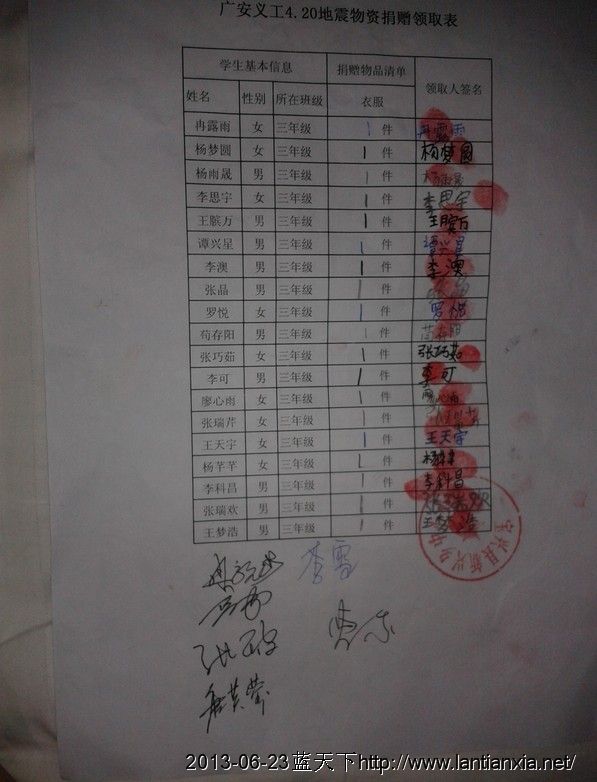 广安义工4.20地震物资捐赠领取表
学生基本信息 捐赠物品清单 领取人签名
姓名 性别 所在班级 衣服
冉露雨 女 三年级 1 件 冉露雨
杨梦圆 女 三年级 1 件 杨梦圆
杨雨晟 男 三年级 1 件 杨雨晟
李思宇 女 三年级 1 件 李思宇
王膑万 男 三年级 1 件 王膑万
谭兴星 男 三年级 1 件 谭兴星
李澳 男 三年级 1 件 李澳
张晶 男 三年级 1 件
罗悦 女 三年级 1 件 罗悦
苟存阳 男 三年级 1 件 苟存阳
张巧茹 女 三年级 1 件 张巧茹
李可 男 三年级 1 件 李可
廖心雨 女 三年级 1 件 廖心雨
张瑞芹 女 三年级 1 件
王天宇 女 三年级 1 件 王天宇
杨芊芊 女 三年级 1 件 杨芊芊
李科昌 男 三年级 1 件 李科昌
张瑞欢 男 三年级 1 件
王梦浩 男 三年级 1 件 王梦浩
李雪
2013-06-23蓝天下http://www.lantianxia.net/